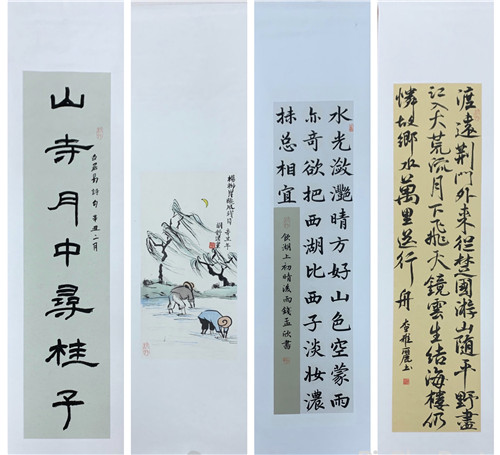 山寺月中尋桂子
白居易詩句 辛丑二月
楊柳岸曉風殘月
辛丑年
水光潋灩晴方好山色空蒙雨
亦奇欲把西湖比西子淡妆濃
抹总相宜
饮湖上初晴後雨錢孟欣書
渡遠荆门外来從楚國游山随平野盡
江入大荒流月下飛天鏡雲生结海樓仍
憐故鄉水萬里送行舟